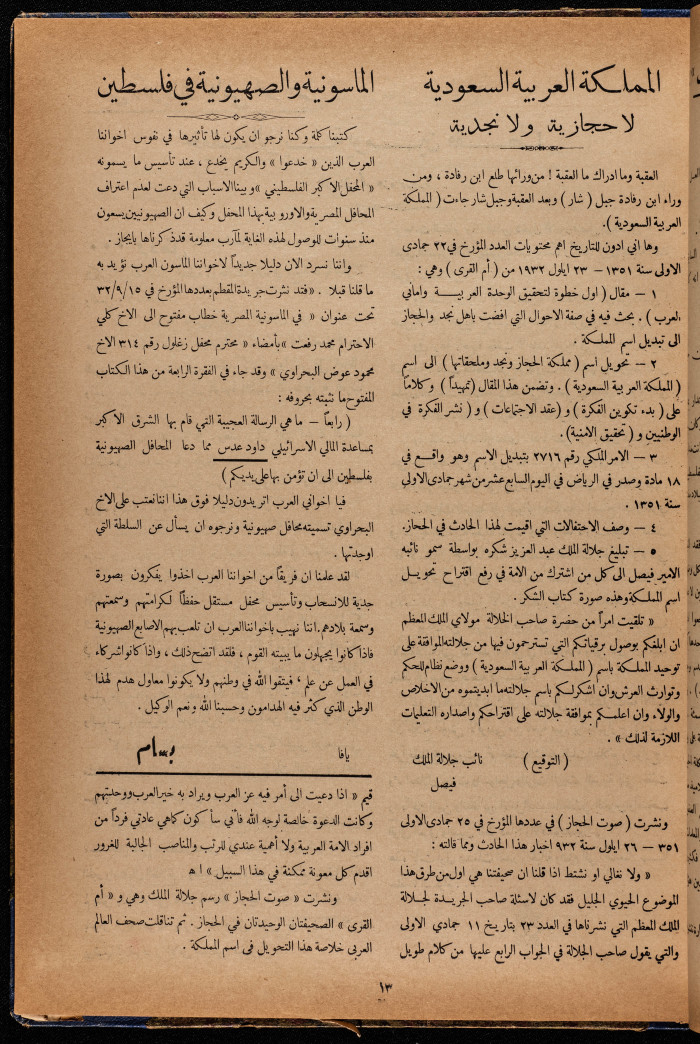 المملكة العربية السعودية
لا حجازية ولا نجدية
العقبة وما ادراك ما العقبة ! من ورائها طلع ابن رفادة ، ومن
وراء ابن رفادة جبل ( شار ) وبعد العقبة وجبل شار جاءت ( المملكة
العربية السعودية ) .
وها اني ادون للتاريخ اهم محتويات العدد المؤرخ في ٢٢ جمادى
الاولى سنة ١٣٥١ — ٢٣ ايلول ١٩٣٢ من ( أم القرى ) وهي :
١ — مقال ( اول خطوة لتحقيق الوحدة العربيـــة واماني
العرب ) . بحث فيه في صفة الاحوال التي افضت باهل نجد والحجاز
الى تبديل اسم المملكة .
٢ — تحويل اسم ( مملكة الحجاز ونجد وملحقاتها ) الى اسم
( المملكة العربية السعودية ) . وتضمن هذا المقال ( تمهيداً ) وكلاماً
على ( بدء تكوين الفكرة ) و ( عقد الاجتماعات ) و ( نشر الفكرة في
الوطنيين و ( تحقيق الامنية ) .
٣ — الامر الملكي رقم ٢٧١٦ بتبديل الاسم وهو واقع في
١٨ مادة وصدر في الرياض في اليوم السابع عشر من شهر جمادى الاولى
سنة ١٣٥١ .
٤ — وصف الاحتفالات التي اقيمت لهذا الحادث في الحجاز .
٥ — تبليغ جلالة الملك عبد العزيز شكره بواسطة سمو نائبه
الامير فيصل الى كل من اشترك من الامة في رفع اقتراح تحويـــل
اسم المملكة وهذه صورة كتاب الشكر .
« تلقيت امراً من حضرة صاحب الجلالة مولاي الملك المعظم
ان ابلغكم بوصول برقياتكم التي تسترحمون فيها من جلالته الموافقة على
توحيد المملكة باسم ( المملكة العربية السعودية ) ووضع نظام للحكم
وتوارث العرش وان اشكر لكم باسم جلالته ما ابديتموه من الاخلاص
والولاء وان اعلمكم بموافقة جلالته على اقتراحكم واصداره التعليمات
اللازمة لذلك » .
( التوقيع ) نائب جلالة الملك
فيصل
ونشرت ( صوت الحجاز ) في عددها المؤرخ في ٢٥ جمادى الاولى
٣٥١ — ٢٦ ايلول سنة ٩٣٢ اخبار هذا الحادث ومما قالته :
« ولا نغالي او نشتط اذا قلنا ان صحيفتنا هي اول من طرق هذا
الموضوع الحيوي الجليل فقد كان لاسئلة صاحب الجريـدة لجلالة
الملك المعظم التي نشرناها في العدد ٢٣ بتاريخ ١١ جمادي الاولى
والتي يقول صاحب الجلالة في الجواب الرابع عليها من كلام طويل
الماسونية والصهيونية في فلسطين
كتبنا كلمة وكنا نرجو ان يكون لها تأثيرها في نفوس اخواننا
العرب الذين « خدعوا » والكريم يخدع ، عند تأسيس ما يسمونه
« المحفل الاكبر الفلسطيني » وبينا الاسباب التي دعت لعدم اعتراف
المحافل المصرية والاوروبية بهذا المحفل وكيف ان الصهيونيين يسعون
منذ سنوات للوصول لهذه الغاية لمآرب معلومة قد ذكرناها بايجاز .
واننا نسرد الان دليلا جديداً لاخواننا الماسون العرب نؤيد به
ما قلنا قبلا . « فقد نشرت جريدة المقطم بعددها المؤرخ في ٣٢/٩/١٥
تحت عنوان « في الماسونية المصرية خطاب مفتوح الى الاخ كلي
الاحترام محمد رفعت » بأمضاء « محترم محفل زغلول رقم ٣١٤ الاخ
محمود عوض البحراوي » وقد جاء في الفقرة الرابعة من هذا الكتاب
المفتوح ما نثبته بحروفه :
( رابعاً — ما هي الرسالة العجيبة التي قام بها الشرق الاكبر
بمساعدة المالي الاسرائيلي داود عدس مما دعا المحافل الصهيونية
بفلسطين الى ان تؤمن بها على يديكم )
فيا اخواني العرب اتريدون دليلا فوق هذا اننا نعتب على الاخ
البحراوي تسميته محافل صهيونية ونرجوه ان يسأل عن السلطة التي
اوجدتها .
لقد علمنا ان فريقاً من اخواننا العرب اخذوا يفكرون بصورة
جدية للانسحاب وتأسيس محفل مستقل حفظاً لكرامتهم وسمعتهم
وسمعة بلادهم . اننا نهيب باخواننا العرب ان تلعب بهم الاصابع الصهيونية
فاذا كانوا يجهلون ما يبيته القوم ، فلقد اتضح ذلك ، واذا كانوا شركاء
في العمل عن علم ، فيتقوا الله في وطنهم ولا يكونوا معاول هدم لهذا
الوطن الذي كثر فيه الهدامون وحسبنا الله ونعم الوكيل .
يافا بسام
قيم « اذا دعيت الى أمر فيه عز العرب ويراد به خير العرب ووحدتهم
وكانت الدعوة خالصة لوجه الله فأني سأكون كما هي عادتي فرداً من
افراد الامة العربية ولا أهمية عندي للرتب والمناصب الجالبة للغرور
اقدم كل معونة ممكنة في هذا السبيل » اه
ونشرت « صوت الحجاز » رسم جلالة الملك وهي و « أم
القرى » الصحيفتان الوحيدتان في الحجاز . ثم تناقلت صحف العالم
العربي خلاصة هذا التحويل في اسم المملكة .
١٣